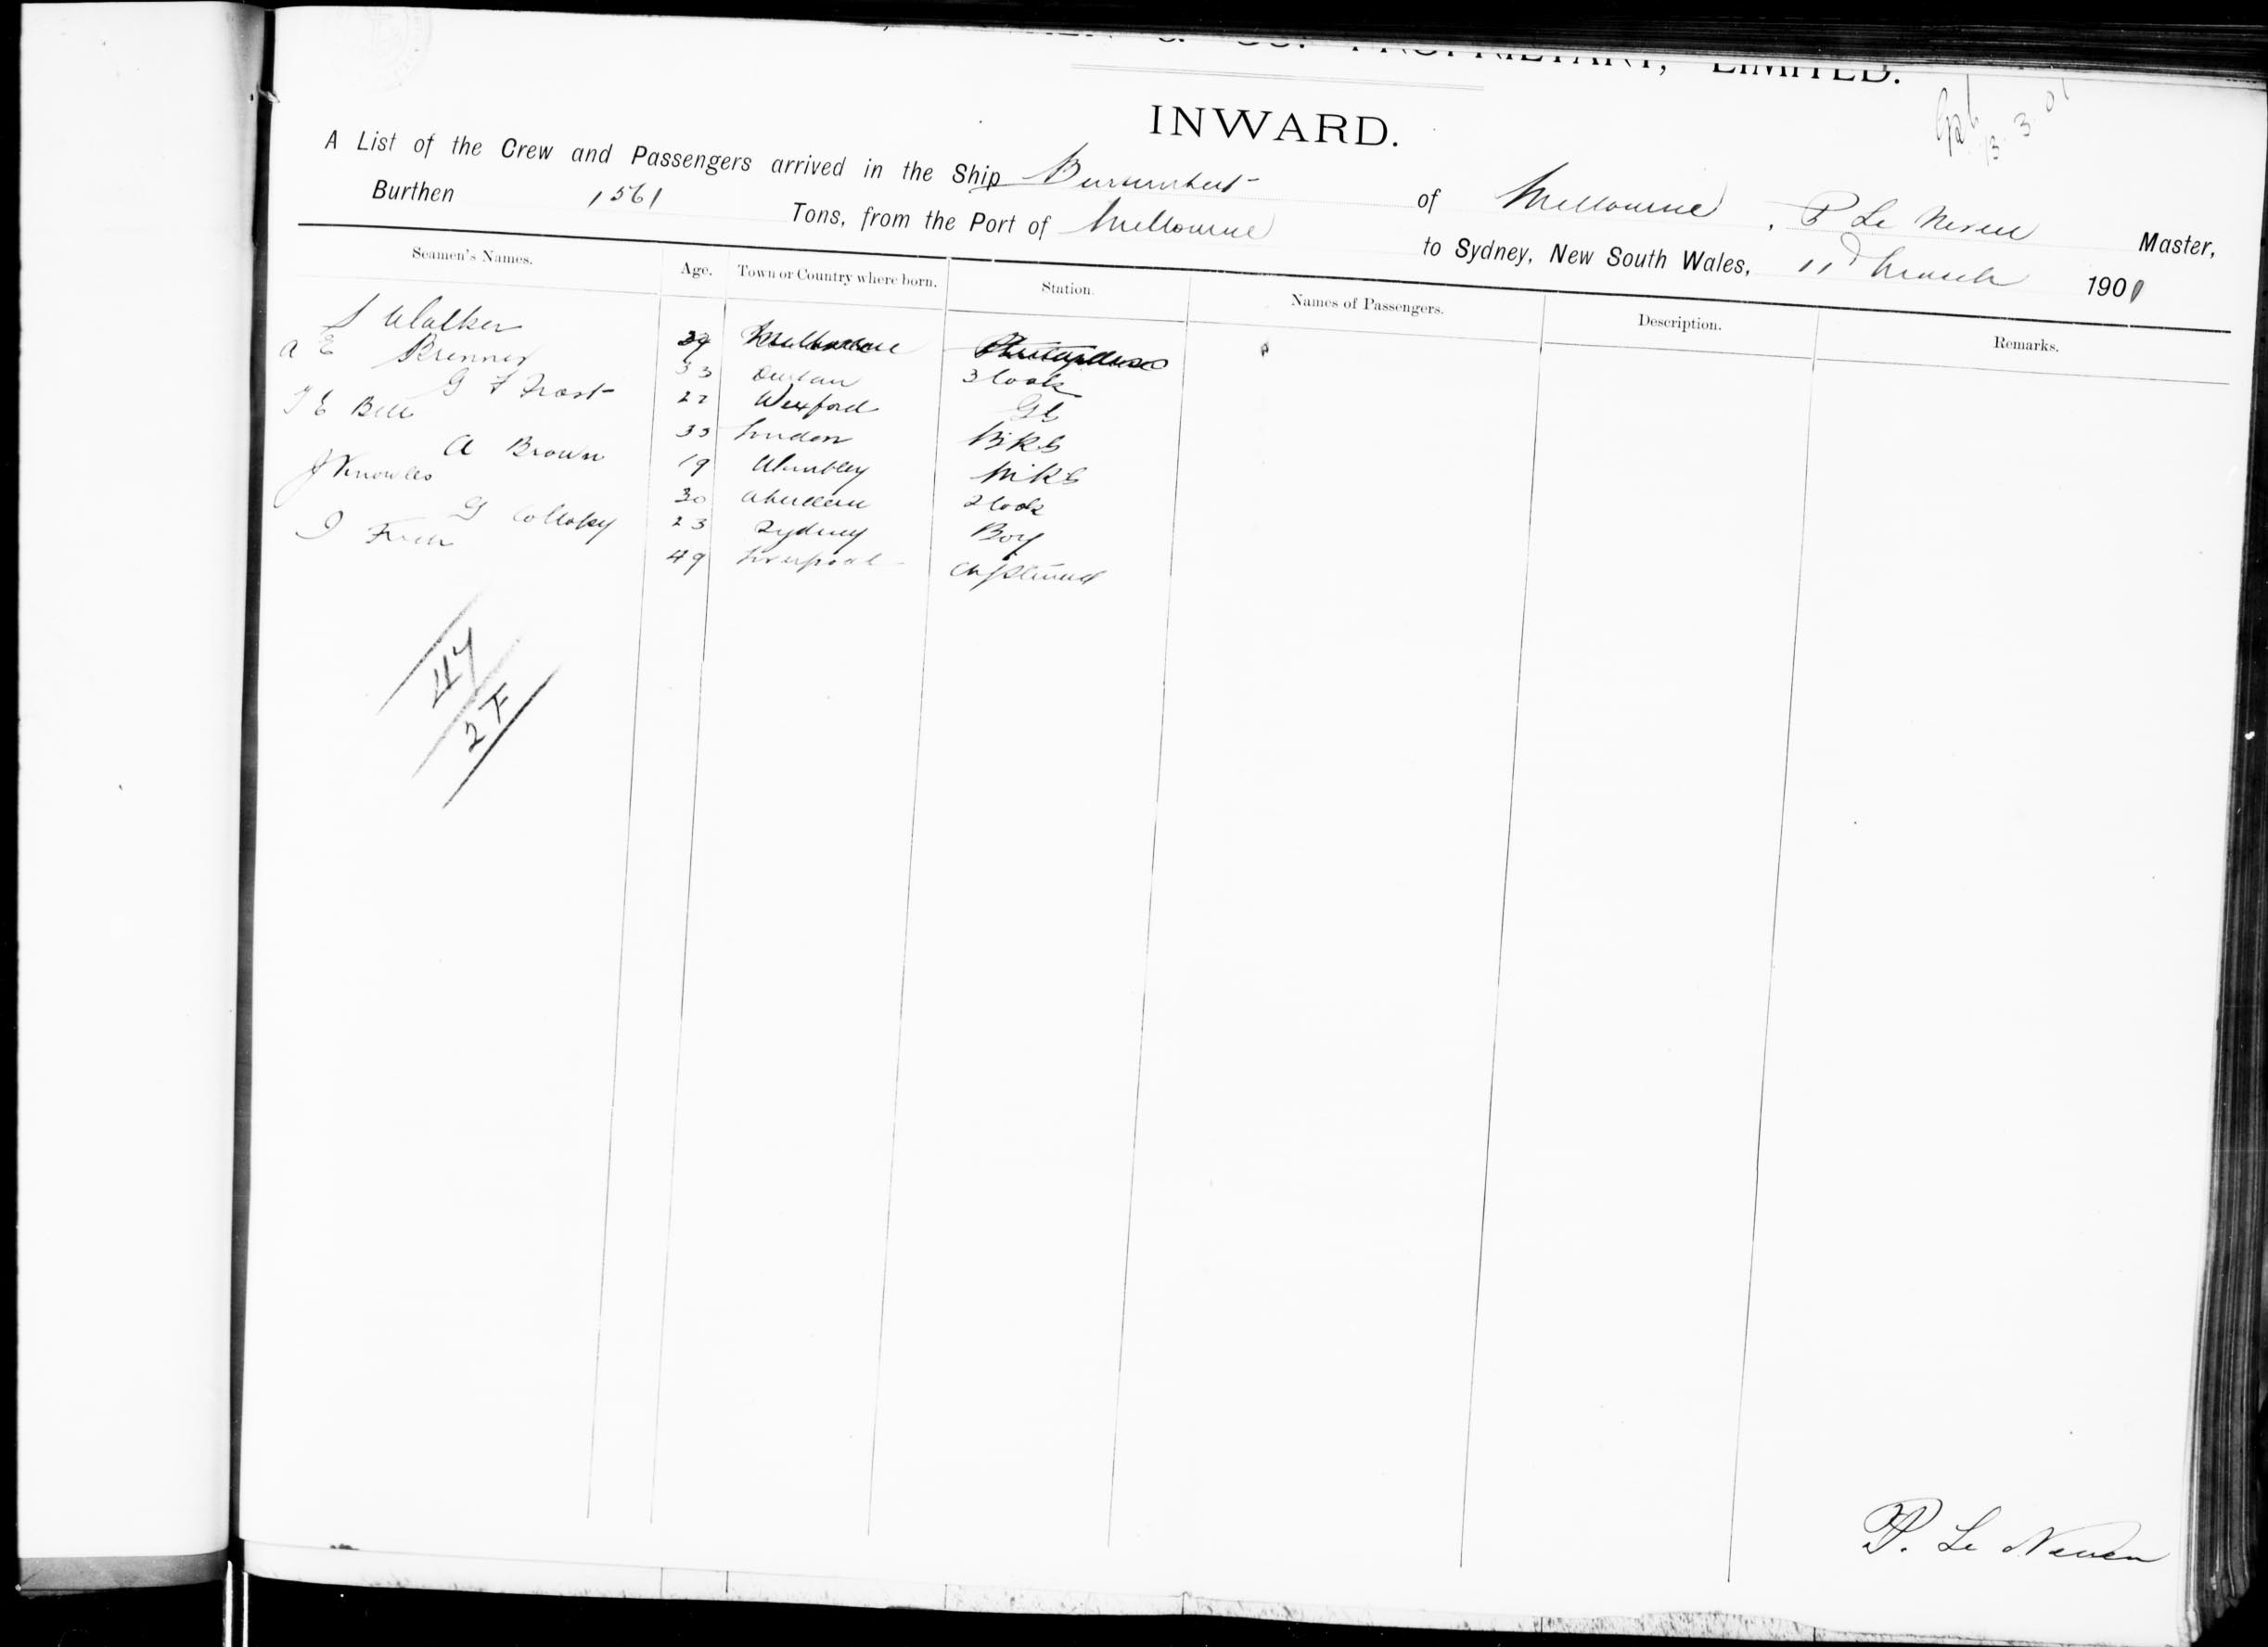 & CO. PROPRIETARY, LIMITED.
INWARD.
13.3.01
A List of the Crew and Passengers arrived in the Ship Burrumbeet of Melbourne, P Le Neveu Master,
Burthen 1561 Tons, from the Port of Melbourne to Sydney, New South Wales, 11th March 1901
Seamen's Names. Age. Town or Country where born. Station. Names of Passengers. Description. Remarks.
S Walker 29 Melbourne
A E Skinner 33 3 Cook
G F Frost 27 Wexford
T E Bell 33 London Bkr
A Brown 19 Wembley
J Knowles 30 Aberdeen 2 Cook
G Collopy 23 Sydney Boy
49 Liverpool
47
2
P. Le Neveu